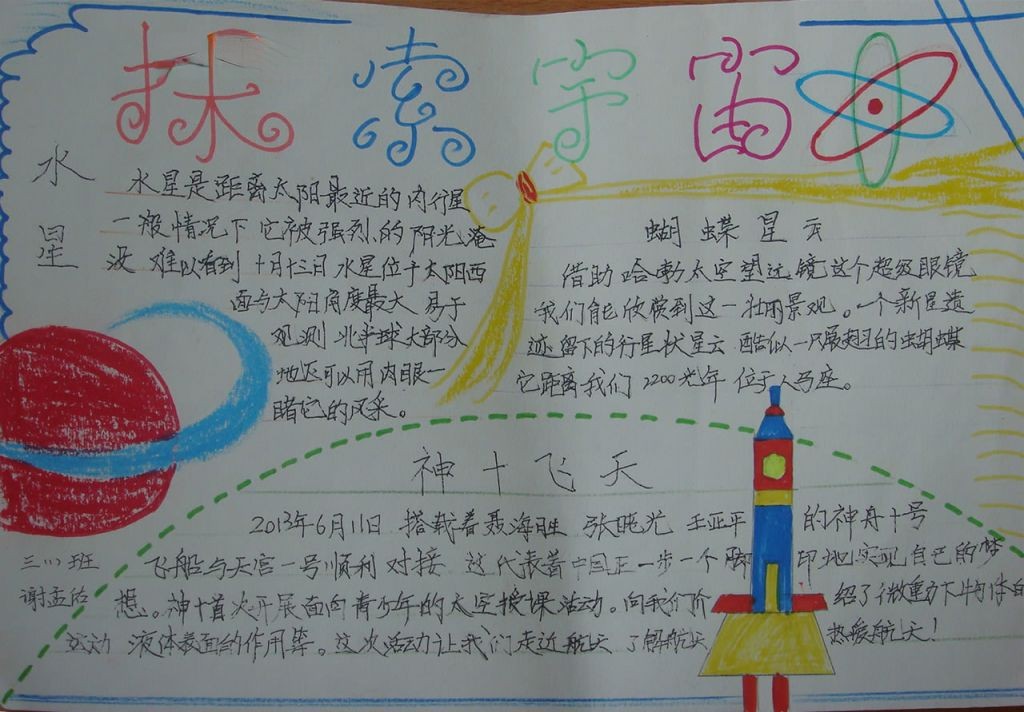 探索宇宙
水星
水星是距离太阳最近的内行星
一般情况下它被强烈的阳光淹
没 难以看到 十月十三日 水星位于太阳西
面与太阳角度最大 易于
观测 北半球大部分
地区可以用肉眼一
睹它的风采。
蝴蝶星云
借助哈勃太空望远镜这个超级眼镜
我们能欣赏到这一壮丽景观。一个新星遗
迹留下的行星状星云 酷似一只展翅的蝴蝶
它距离我们 2200光年 位于人马座。
神十飞天
2013年6月11日 搭载着聂海胜 张晓光 王亚平 的神舟十号
飞船与天宫一号顺利对接 这代表着中国正一步一个脚印地实现自己的梦
想。神十首次开展面向青少年的太空授课活动。向我们介绍了微重力下物体的
运动 液体表面的作用等。这次活动让我们走近航天 了解航天 热爱航天!
三(1)班
谢孟